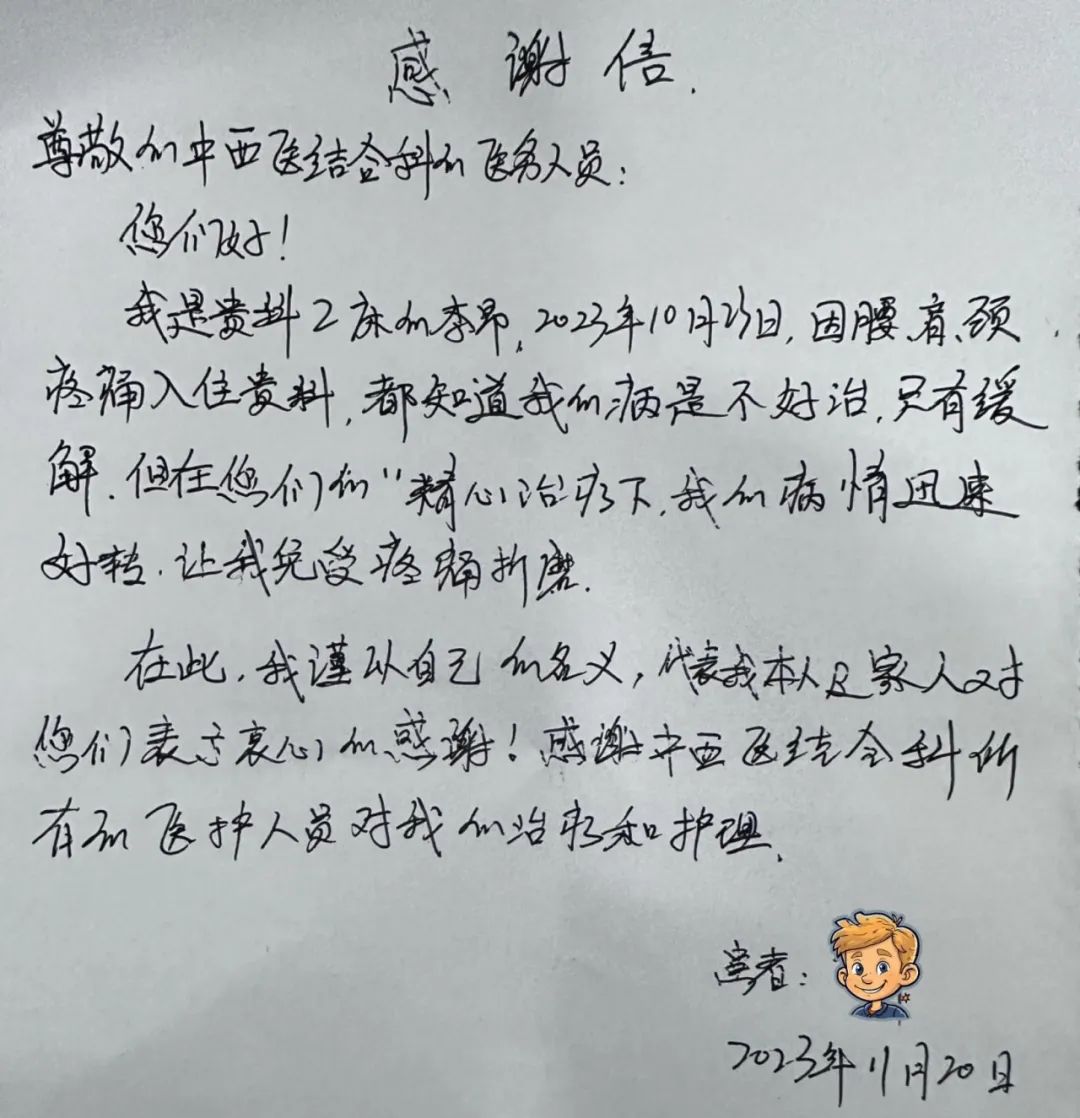 感谢信.
尊敬的中西医结合科的医务人员:
您们好!
我是贵科2床的李昂,2023年10月23日,因腰、肩、颈
疼痛入住贵科,都知道我的病是不好治,只有缓
解.但在您们的"精心治疗下,我的病情迅速
好转.让我免受疼痛折磨.
在此,我谨以自己的名义,代表我本人及家人对
您们表示衷心的感谢!感谢中西医结合科所
有的医护人员对我的治疗和护理.
患者:
2023年11月20日